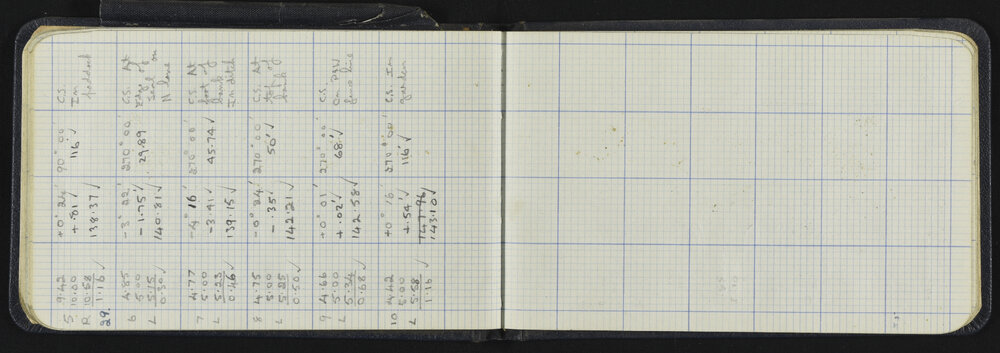 5 9.42 +0° 24' 90° 00' C.S.
R 10.00 +.81 ✓ 116' ✓ In
10.58 138.37 ✓ paddock
29. 1.16 ✓
6 4.85 -3° 22' 270° 00' C.S. At
5.00 -1.75' ✓ 29.89 Edge of
L 5.15 140.81 ✓ Seal on
0.30 ✓ N lane
7 4.77 -4° 16' 270° 00' C.S. At
5.00 -3.41 ✓ 45.74 ✓ foot of
L 5.23 139.15 ✓ bank
0.46 ✓ In ditch
8 4.75 -0° 24' 270° 00' C.S. At
5.00 -.35' ✓ 50' ✓ top of
L 5.25 142.21 ✓ bank
0.50 ✓
9 4.66 +0° 01' 270° 00' C.S.
5.00 +.02' ✓ 68' ✓ On
L 5.34 142.58 ✓ line
0.68 ✓
10 4.42 +0° 16' 270° 00' C.S. In
5.00 +.54' ✓ 116' ✓ garden
L 5.58 141.96
1.16 ✓ 143.10 ✓